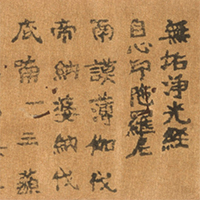 無垢淨光經
自心印陁羅尼
南謨薄伽伐
帝納婆納伐
底南二三藐